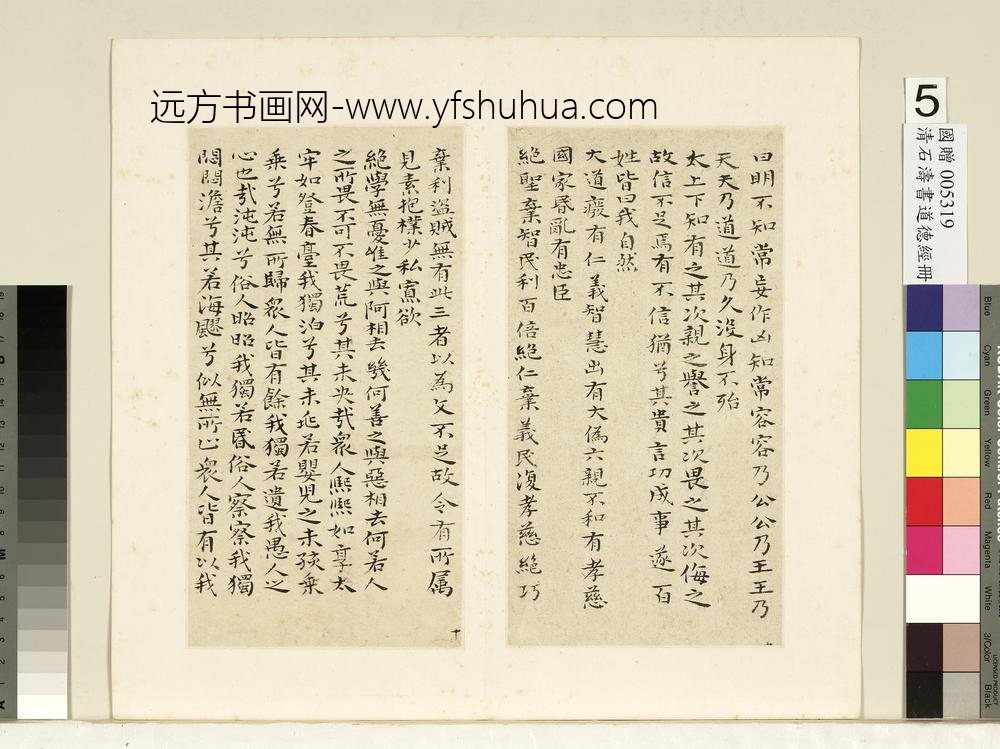 远方书画网-www.yfshuhua.com
5
國贈 005319
清石濤書道德經冊
曰明不知常妄作凶知常容容乃公公乃王王乃
天天乃道道乃久没身不殆
太上下知有之其次親之譽之其次畏之其次侮之
故信不足焉有不信猶兮其貴言功成事遂百
姓皆曰我自然
大道廢有仁義智慧出有大偽六親不和有孝慈
國家昏亂有忠臣
絕聖棄智民利百倍絕仁棄義民復孝慈絕巧
棄利盜賊無有此三者以為文不足故令有所屬
見素抱樸少私寡欲
絕學無憂唯之與阿相去幾何善之與惡相去何若人
之所畏不可不畏荒兮其未央哉衆人熙熙如享太
牢如登春臺我獨泊兮其未兆若嬰兒之未孩乗
乗兮若無所歸衆人皆有餘我獨若遺我愚人之
心也哉沌沌兮俗人昭昭我獨若昏俗人察察我獨
悶悶澹兮其若海飂兮似無所止衆人皆有以我
十
Blue
Cyan
Green
Yellow
Red
Magenta
White
3/Color
Black